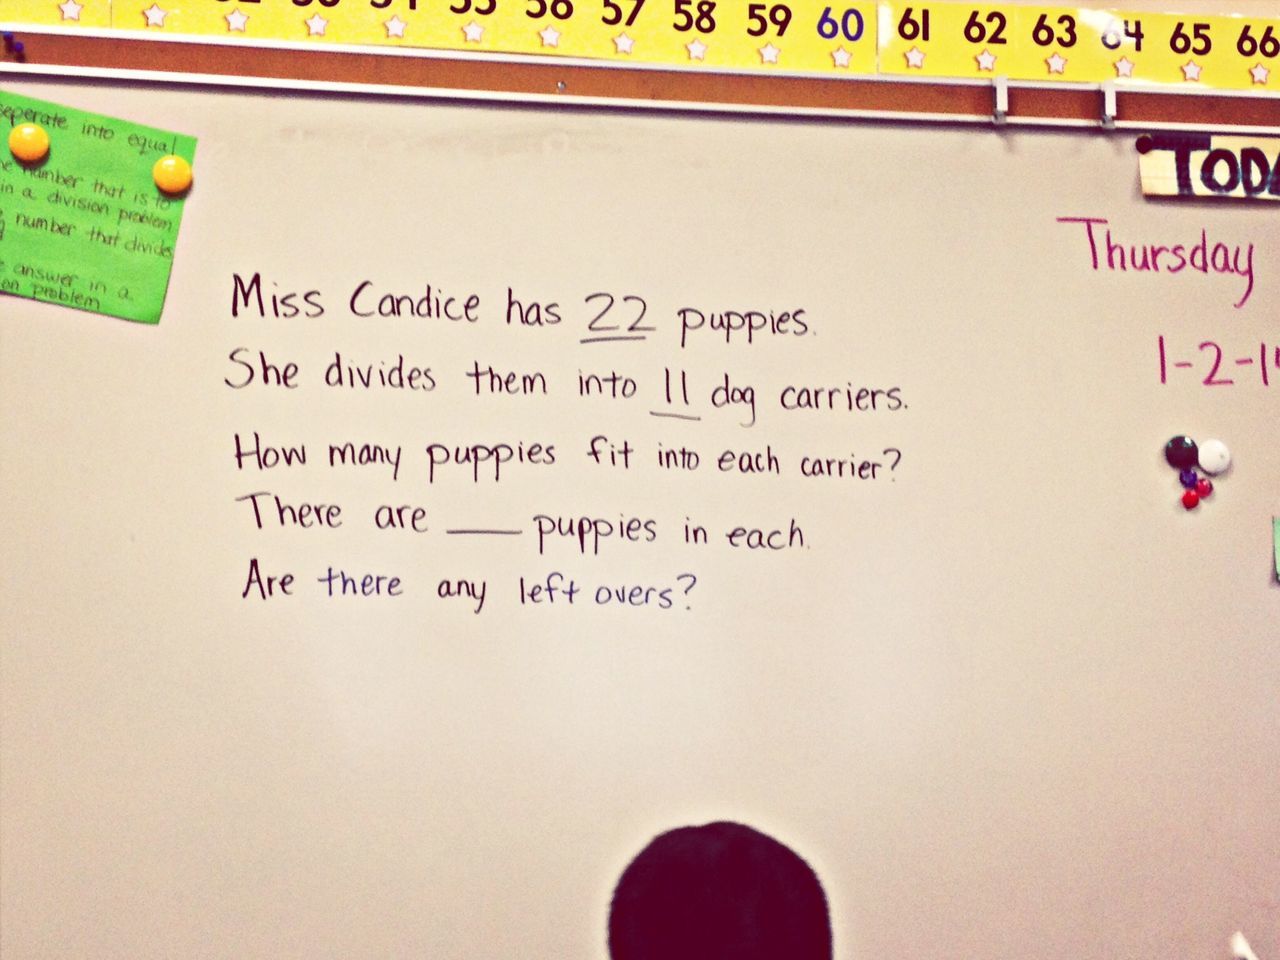 56 57 58 59 60 61 62 63 64 65 66
seperate into equal
number that is to
in a division problem
number that divides
answer in a
problem
TODA
Thursday
1-2-1
Miss Candice has 22 puppies.
She divides them into 11 dog carriers.
How many puppies fit into each carrier?
There are ___ puppies in each.
Are there any left overs?